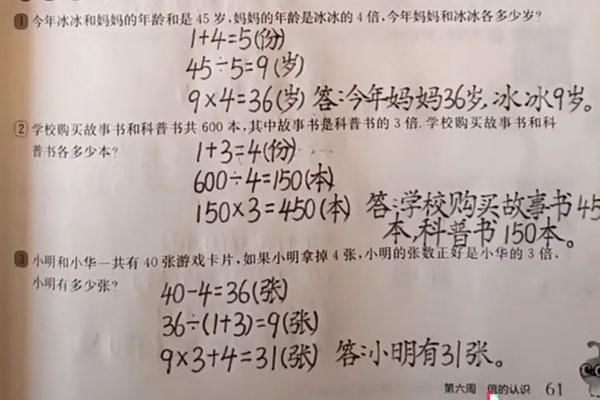 1 今年冰冰和妈妈的年龄和是 45 岁,妈妈的年龄是冰冰的 4 倍,今年妈妈和冰冰各多少岁?
1+4=5(份)
45÷5=9(岁)
9×4=36(岁) 答:今年妈妈36岁,冰冰9岁。
2 学校购买故事书和科普书共 600 本,其中故事书是科普书的 3 倍.学校购买故事书和科
普书各多少本?
1+3=4(份)
600÷4=150(本)
150×3=450(本) 答:学校购买故事书45
本,科普书150本。
3 小明和小华一共有 40 张游戏卡片,如果小明拿掉 4 张,小明的张数正好是小华的 3 倍.
小明有多少张?
40-4=36(张)
36÷(1+3)=9(张)
9×3+4=31(张) 答:小明有31张。
第六周 倍的认识 61